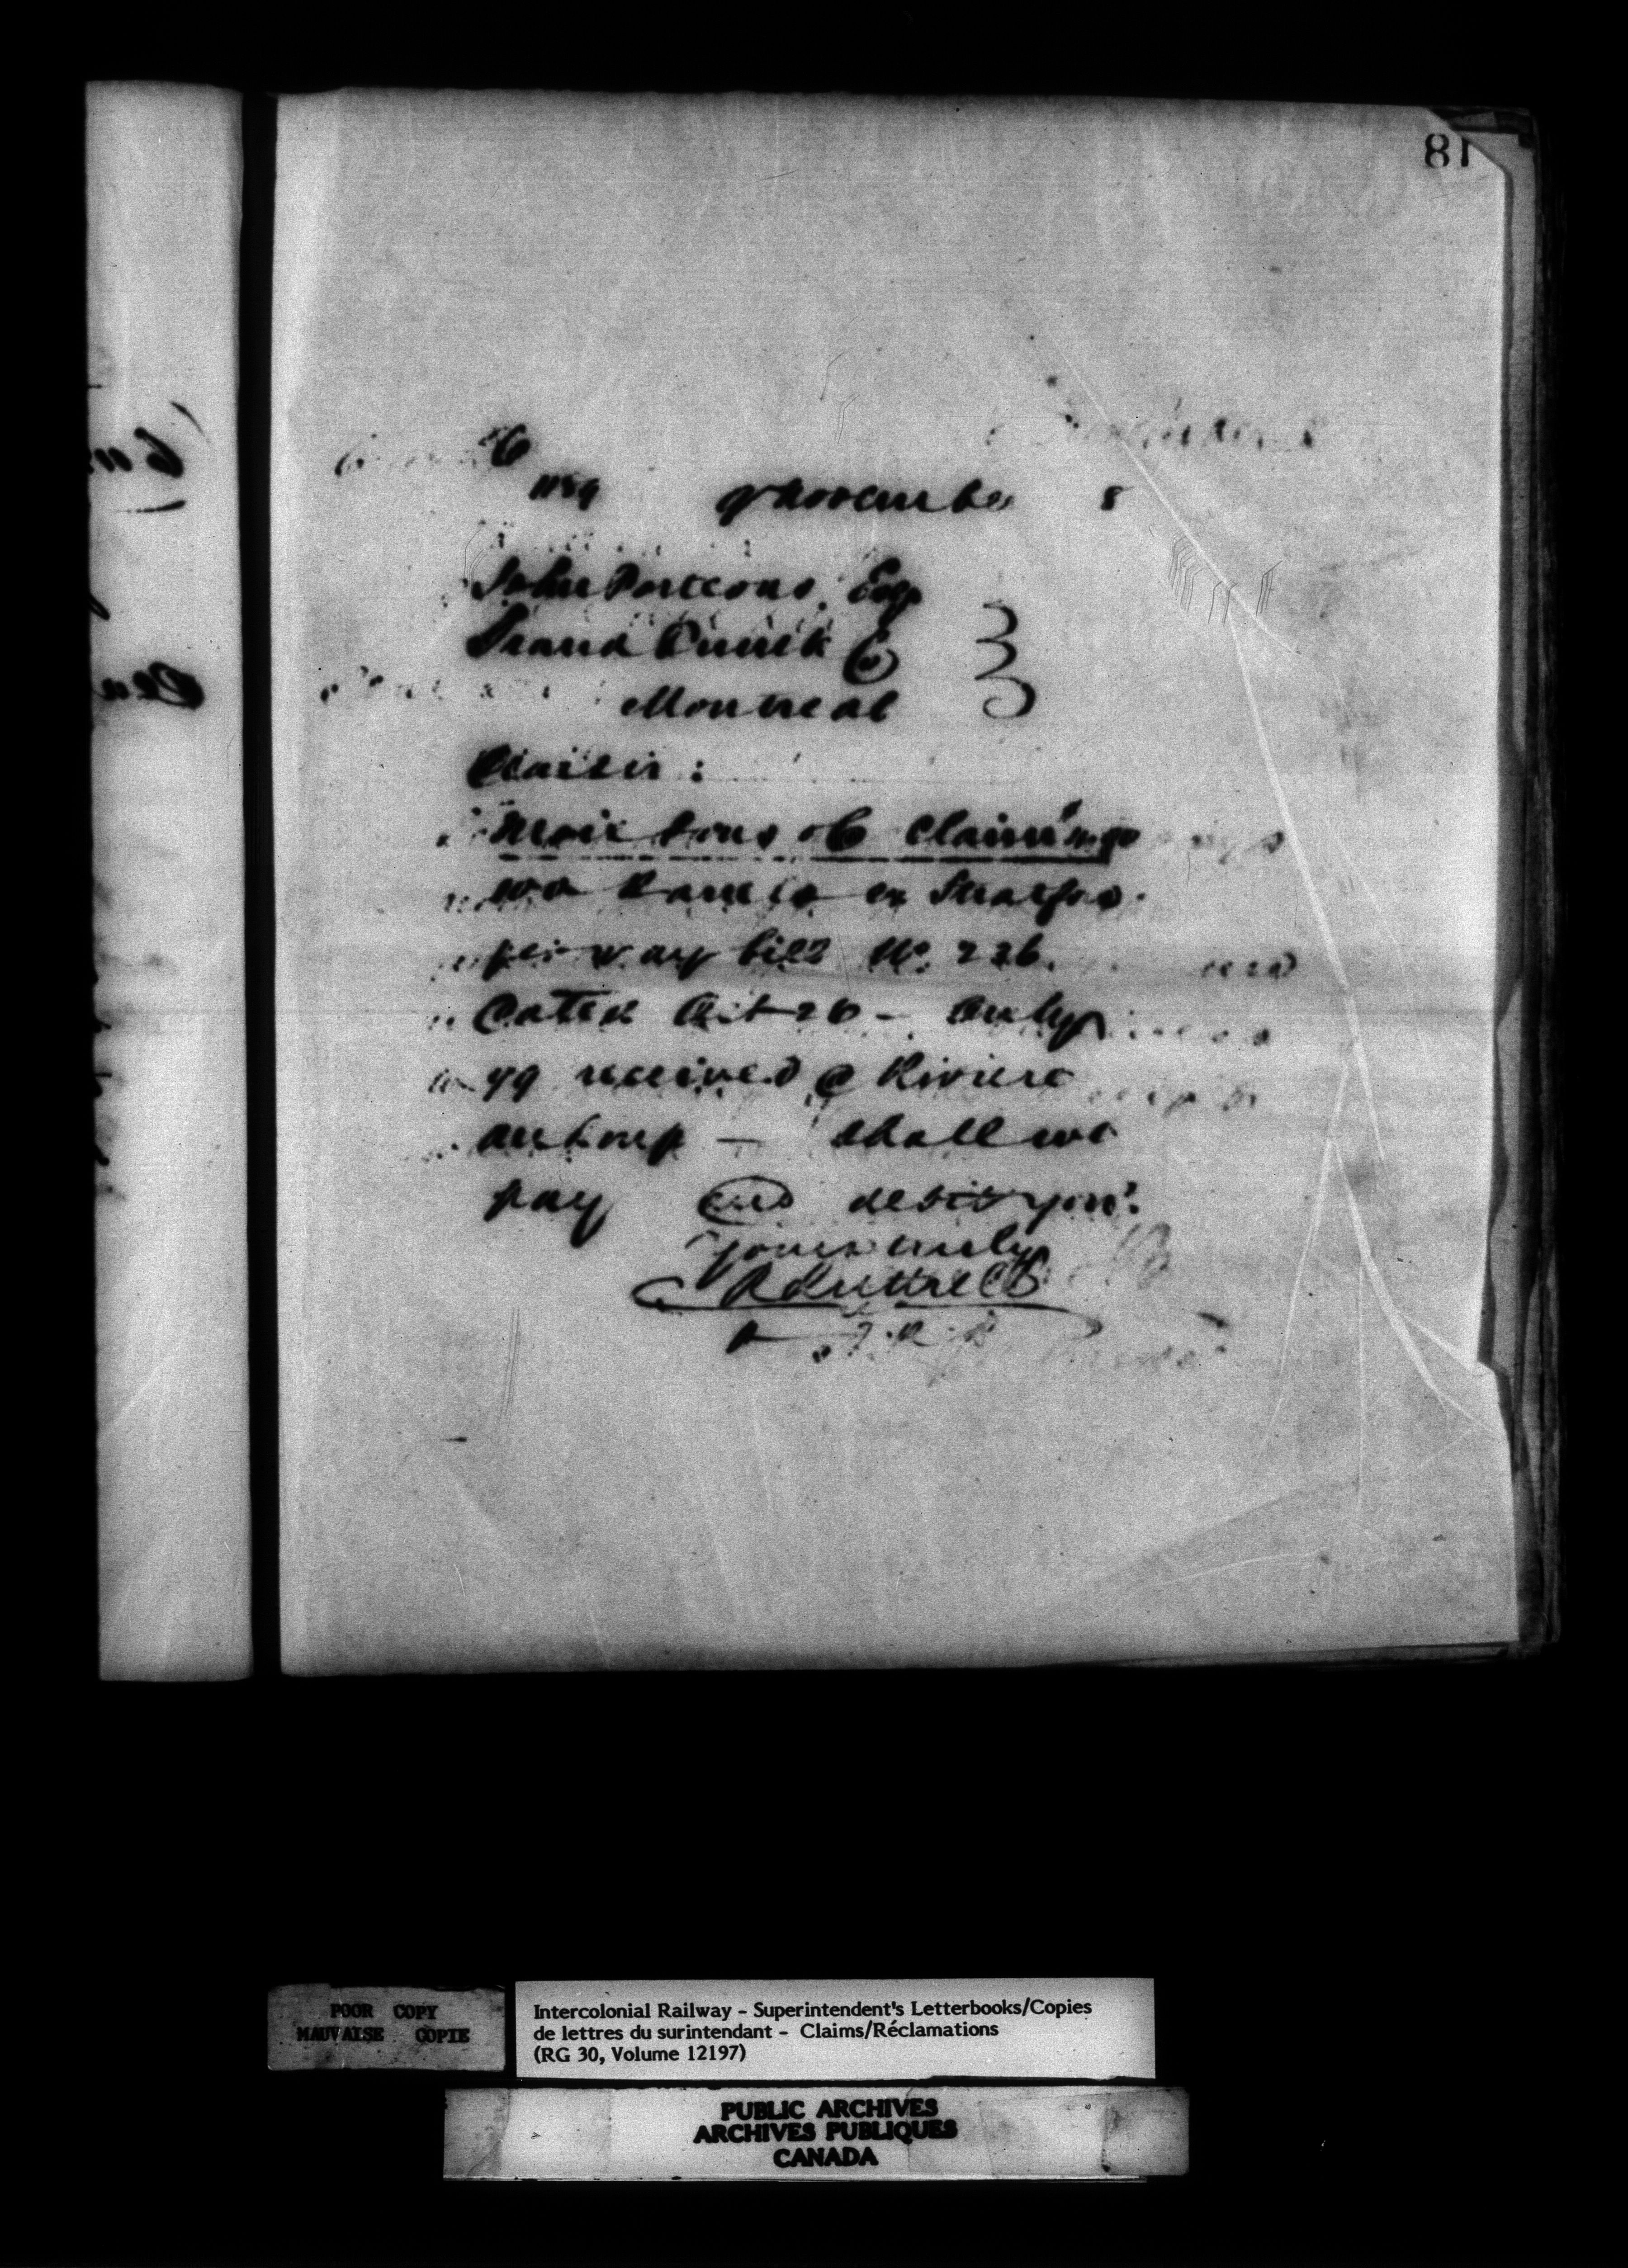 81
6
1159 November 8
John Porteous Esq
Grand Trunk Co
Montreal
Dear Sir :
Moir Sons & Co Claiming
100 Barrels ex Stratford
per way bill No. 226.
dated Oct 26 - Only
99 received @ Riviere
du Loup — Shall we
pay and debit you?
Yours truly
R Luttrell
POOR COPY
MAUVAISE COPIE
Intercolonial Railway - Superintendent's Letterbooks/Copies
de lettres du surintendant - Claims/Réclamations
(RG 30, Volume 12197)
PUBLIC ARCHIVES
ARCHIVES PUBLIQUES
CANADA